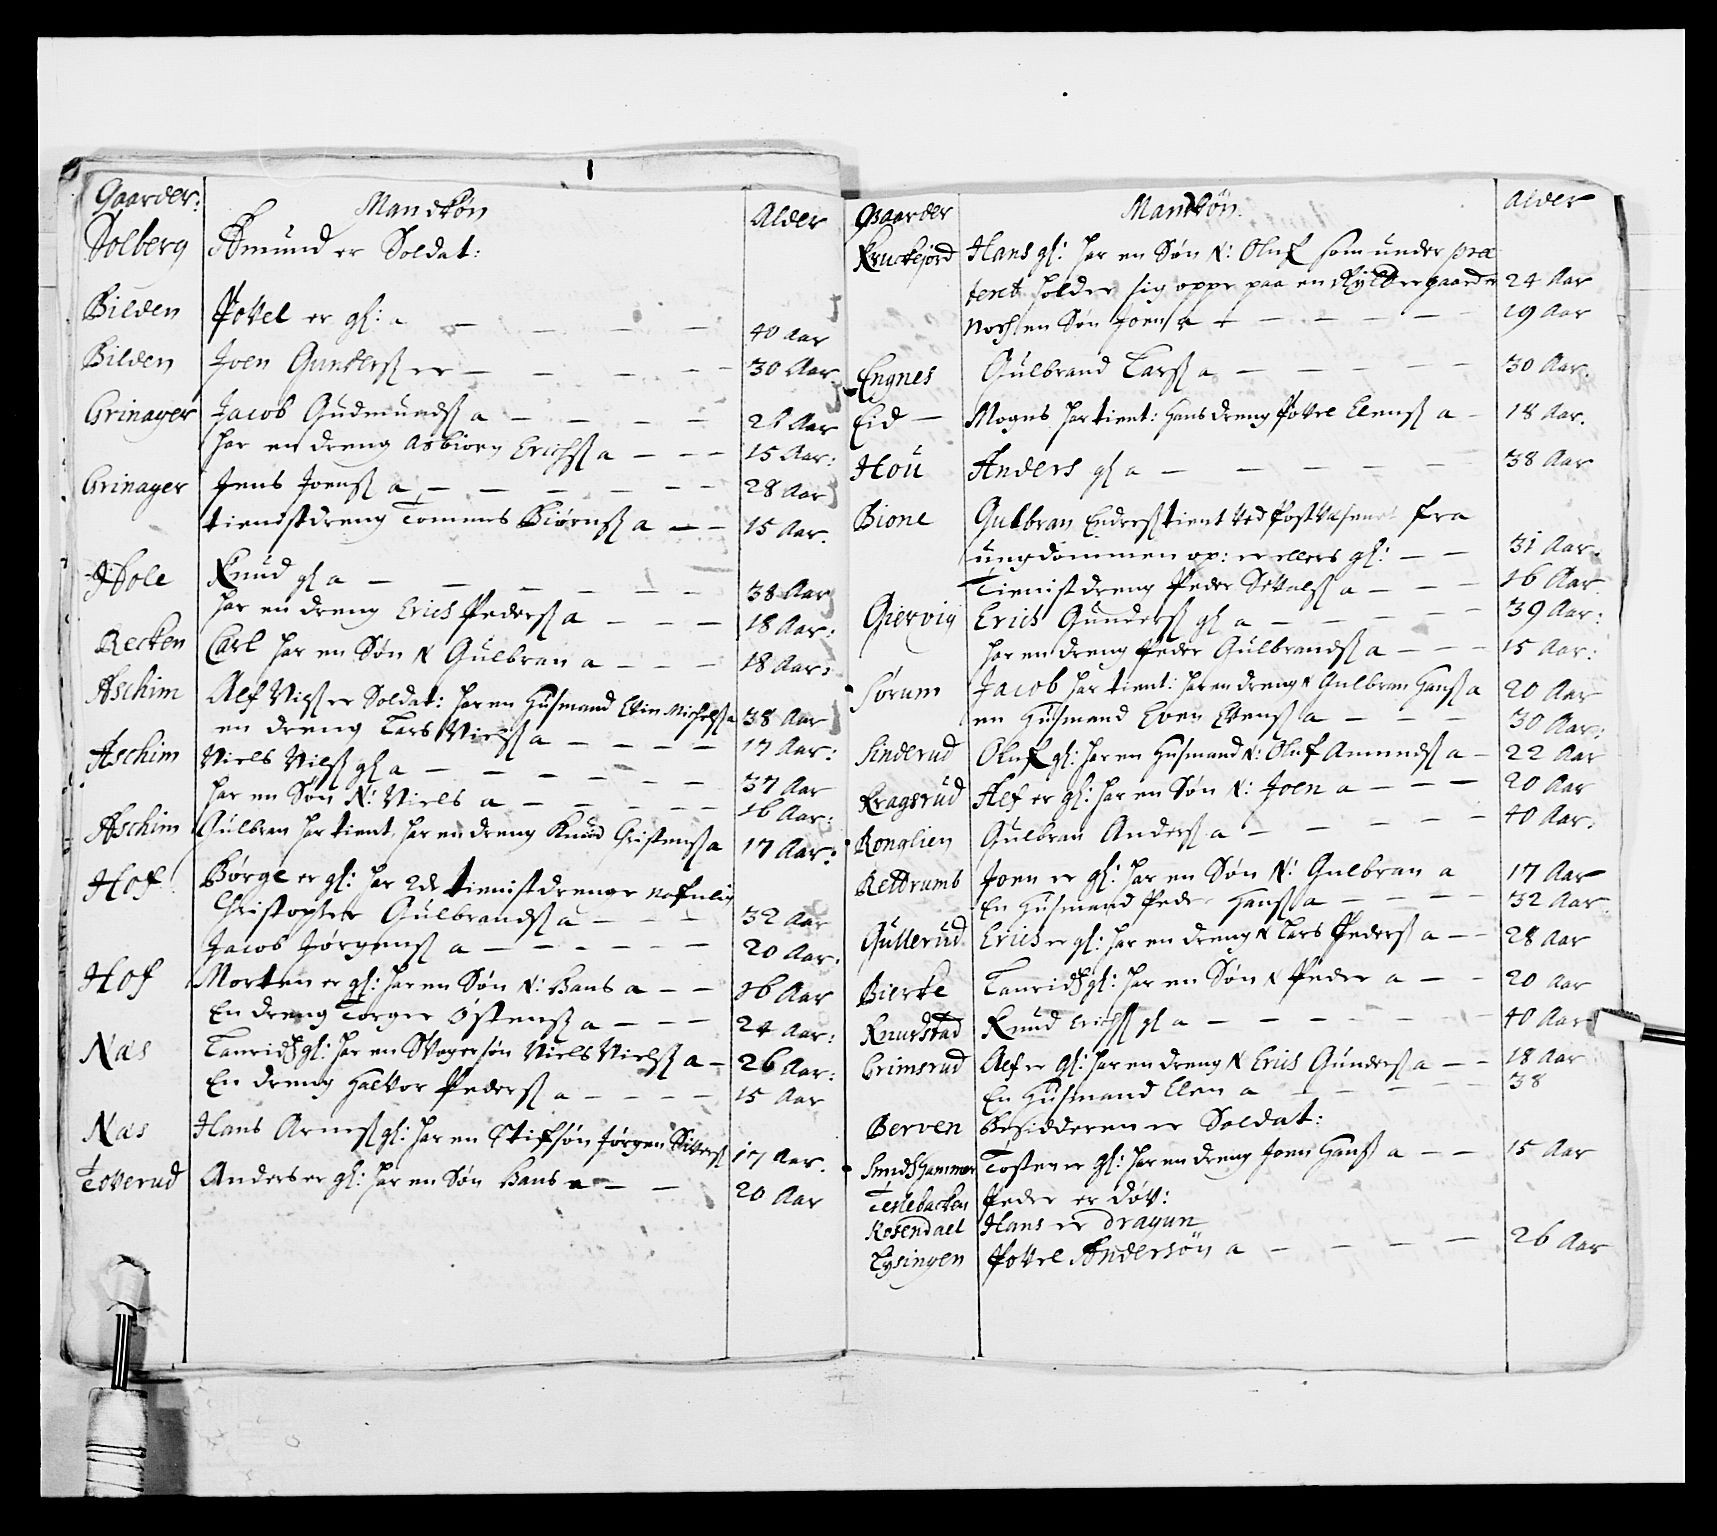 Gaarder: Mandkön Alder
Solberg Amund er Soldat:
Bilden Povel er gl: a — — — — 40 Aar
Bilden Joen Gunders er — — — — 30 Aar
Grinager Jacob Gudmunds a — — — — Aar
har en dreng Asbiørn Erichs a — — — 15 Aar:
Grinager Jens Joens a — — — — — 28 Aar
tienistdreng Tommes Biørns a — — 15 Aar.
Hole Knud gl a — — — — — 38 Aar
har en dreng Erich Peders a — — — 18 Aar:
Recken Carl har en Søn N Gulbran a — — — 18 Aar:
Aschim Alf Niels er Soldat: har en Husmand Evin Michels a 38 Aar
en dreng Lars Niels a — — — — 17 Aar:
Aschim Niels Niels gl a — — — — — — 37 Aar
har en Søn N: Niels a — — — — — 16 Aar:
Aschim Gulbran har tient, har en dreng Knud Cristens a 17 Aar:
Hof Børge er gl: har 2de tienistdrenge nefnlig
Christopher Gulbrands a — — — 32 Aar
Jacob Jørgens a — — — — — 20 Aar:
Hof Morten er gl: har en Søn N: Hans a — — 16 Aar
En dreng Torger Østens a — — — 24 Aar:
Næs Lauridtz gl: har en Svogersøn Niels Niels a — 26 Aar:
En dreng Halvor Peders a — — — — 15 Aar
Næs Hans Arnes gl: har en Stifsøn Jørgen Sivers 17 Aar.
Toverud Anders er gl: har en Søn Hans a — — 20 Aar
Gaarder Mandkön. Alder
Kruckejord Hans gl: har en Søn N: Oluf som under præ
text holder sig oppe paa en Rytter gaard a 24 Aar
noch en Søn Joen a — — — — — 19 Aar
Engnes Gulbrand Lars a — — — — — 30 Aar.
Eid — Mogens har tient: Hans dreng Povel Elens a — 18 Aar.
Hou Anders gl a — — — — — 38 Aar
Bione Gulbran Enders tient ved Postvæsenet fra
ungdommen op: er ellers gl: — — 31 Aar.
Tienistdreng Peder Sivals a — — — 16 Aar
Giervig Erich Gunders gl a — — — — — 39 Aar:
har en dreng Peder Gulbrands a — — — 15 Aar:
Sørum Jacob har tient: har en dreng N Gulbran Hans a 20 Aar
en Husmand Even Evens a — — — 30 Aar:
Sinderud Oluf gl: har en Husmand N: Oluf Amunds a — 22 Aar
Kragsrud Alf er gl: har en Søn N: Joen a — — — 20 Aar
Ronglien Gulbran Anders a — — — — — 40 Aar:
Rettrumb Joen er gl: har en Søn N: Gulbran a 17 Aar
En Husmand Peder Hans a — — — — 32 Aar
Gullerud Erich er gl: har en dreng N Lars Peders a — — 28 Aar
Bierke Lauridtz gl: har en Søn N Peder a — — 20 Aar
Knurstad Knud Erichs gl a — — — — — — 40 Aar
Grimsrud Alf er gl: har en dreng N Erich Gunders a — — 18 Aar
En Husmand Elen a — — — — — 38
Berven Besidderen er Soldat:
Smidshammer Tosten er gl: har en dreng Joen Hans a — — 15 Aar
Teslebacken Peder er døv:
Rosendael Hans er dragun
Lysingen Povel Andersön a — — — — 26 Aar